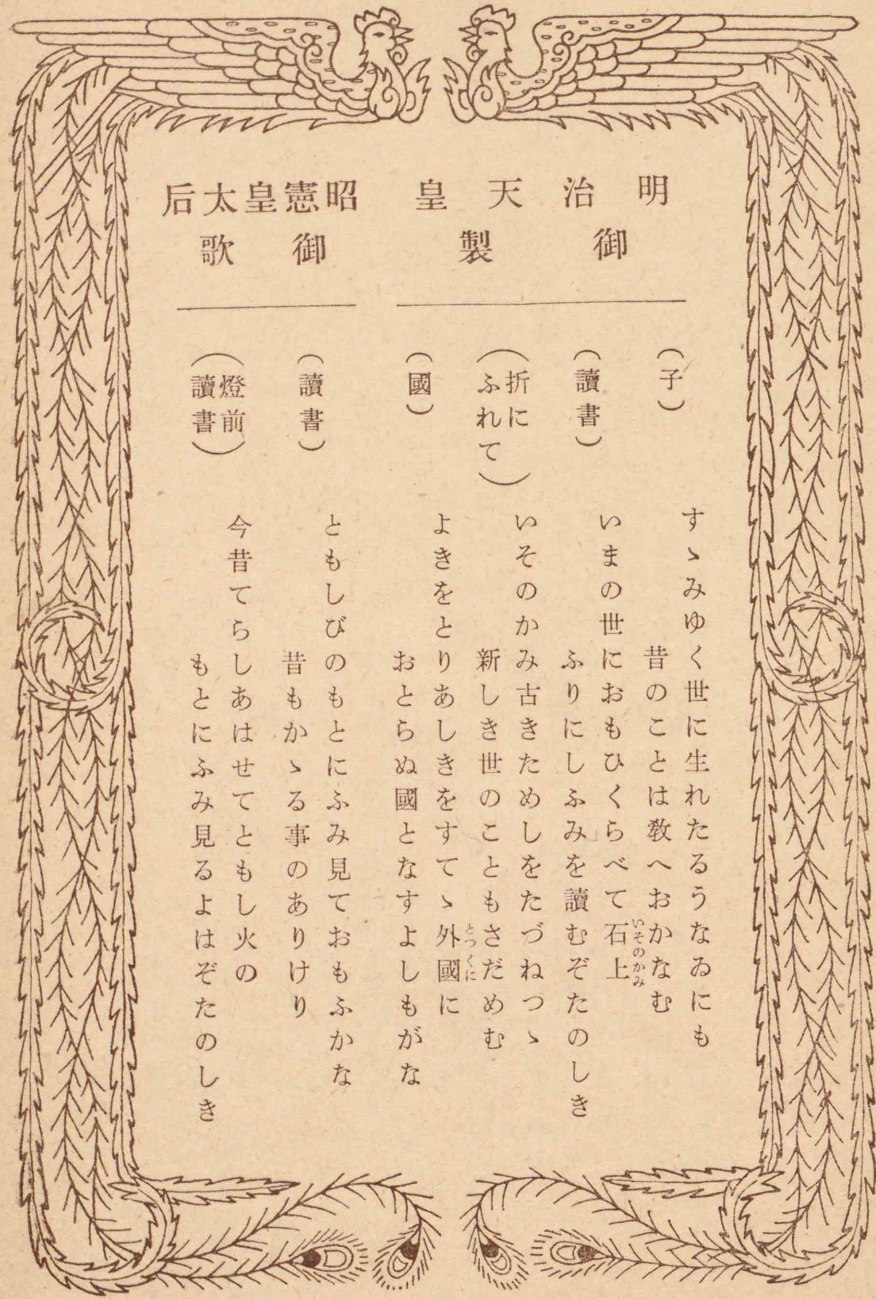 明治天皇
御製
（子）
すゝみゆく世に生れたるうなゐにも
昔のことは教へおかなむ
（讀書）
いまの世におもひくらべて石上
いそのかみ
ふりにしふみを讀むぞたのしき
（折に
ふれて）
いそのかみ古きためしをたづねつゝ
新しき世のこともさだめむ
（國）
よきをとりあしきをすてゝ外國に
とつくに
おとらぬ國となすよしもがな
昭憲皇太后
御歌
（讀書）
ともしびのもとにふみ見ておもふかな
昔もかゝる事のありけり
（燈前
讀書）
今昔てらしあはせてともし火の
もとにふみ見るよはぞたのしき